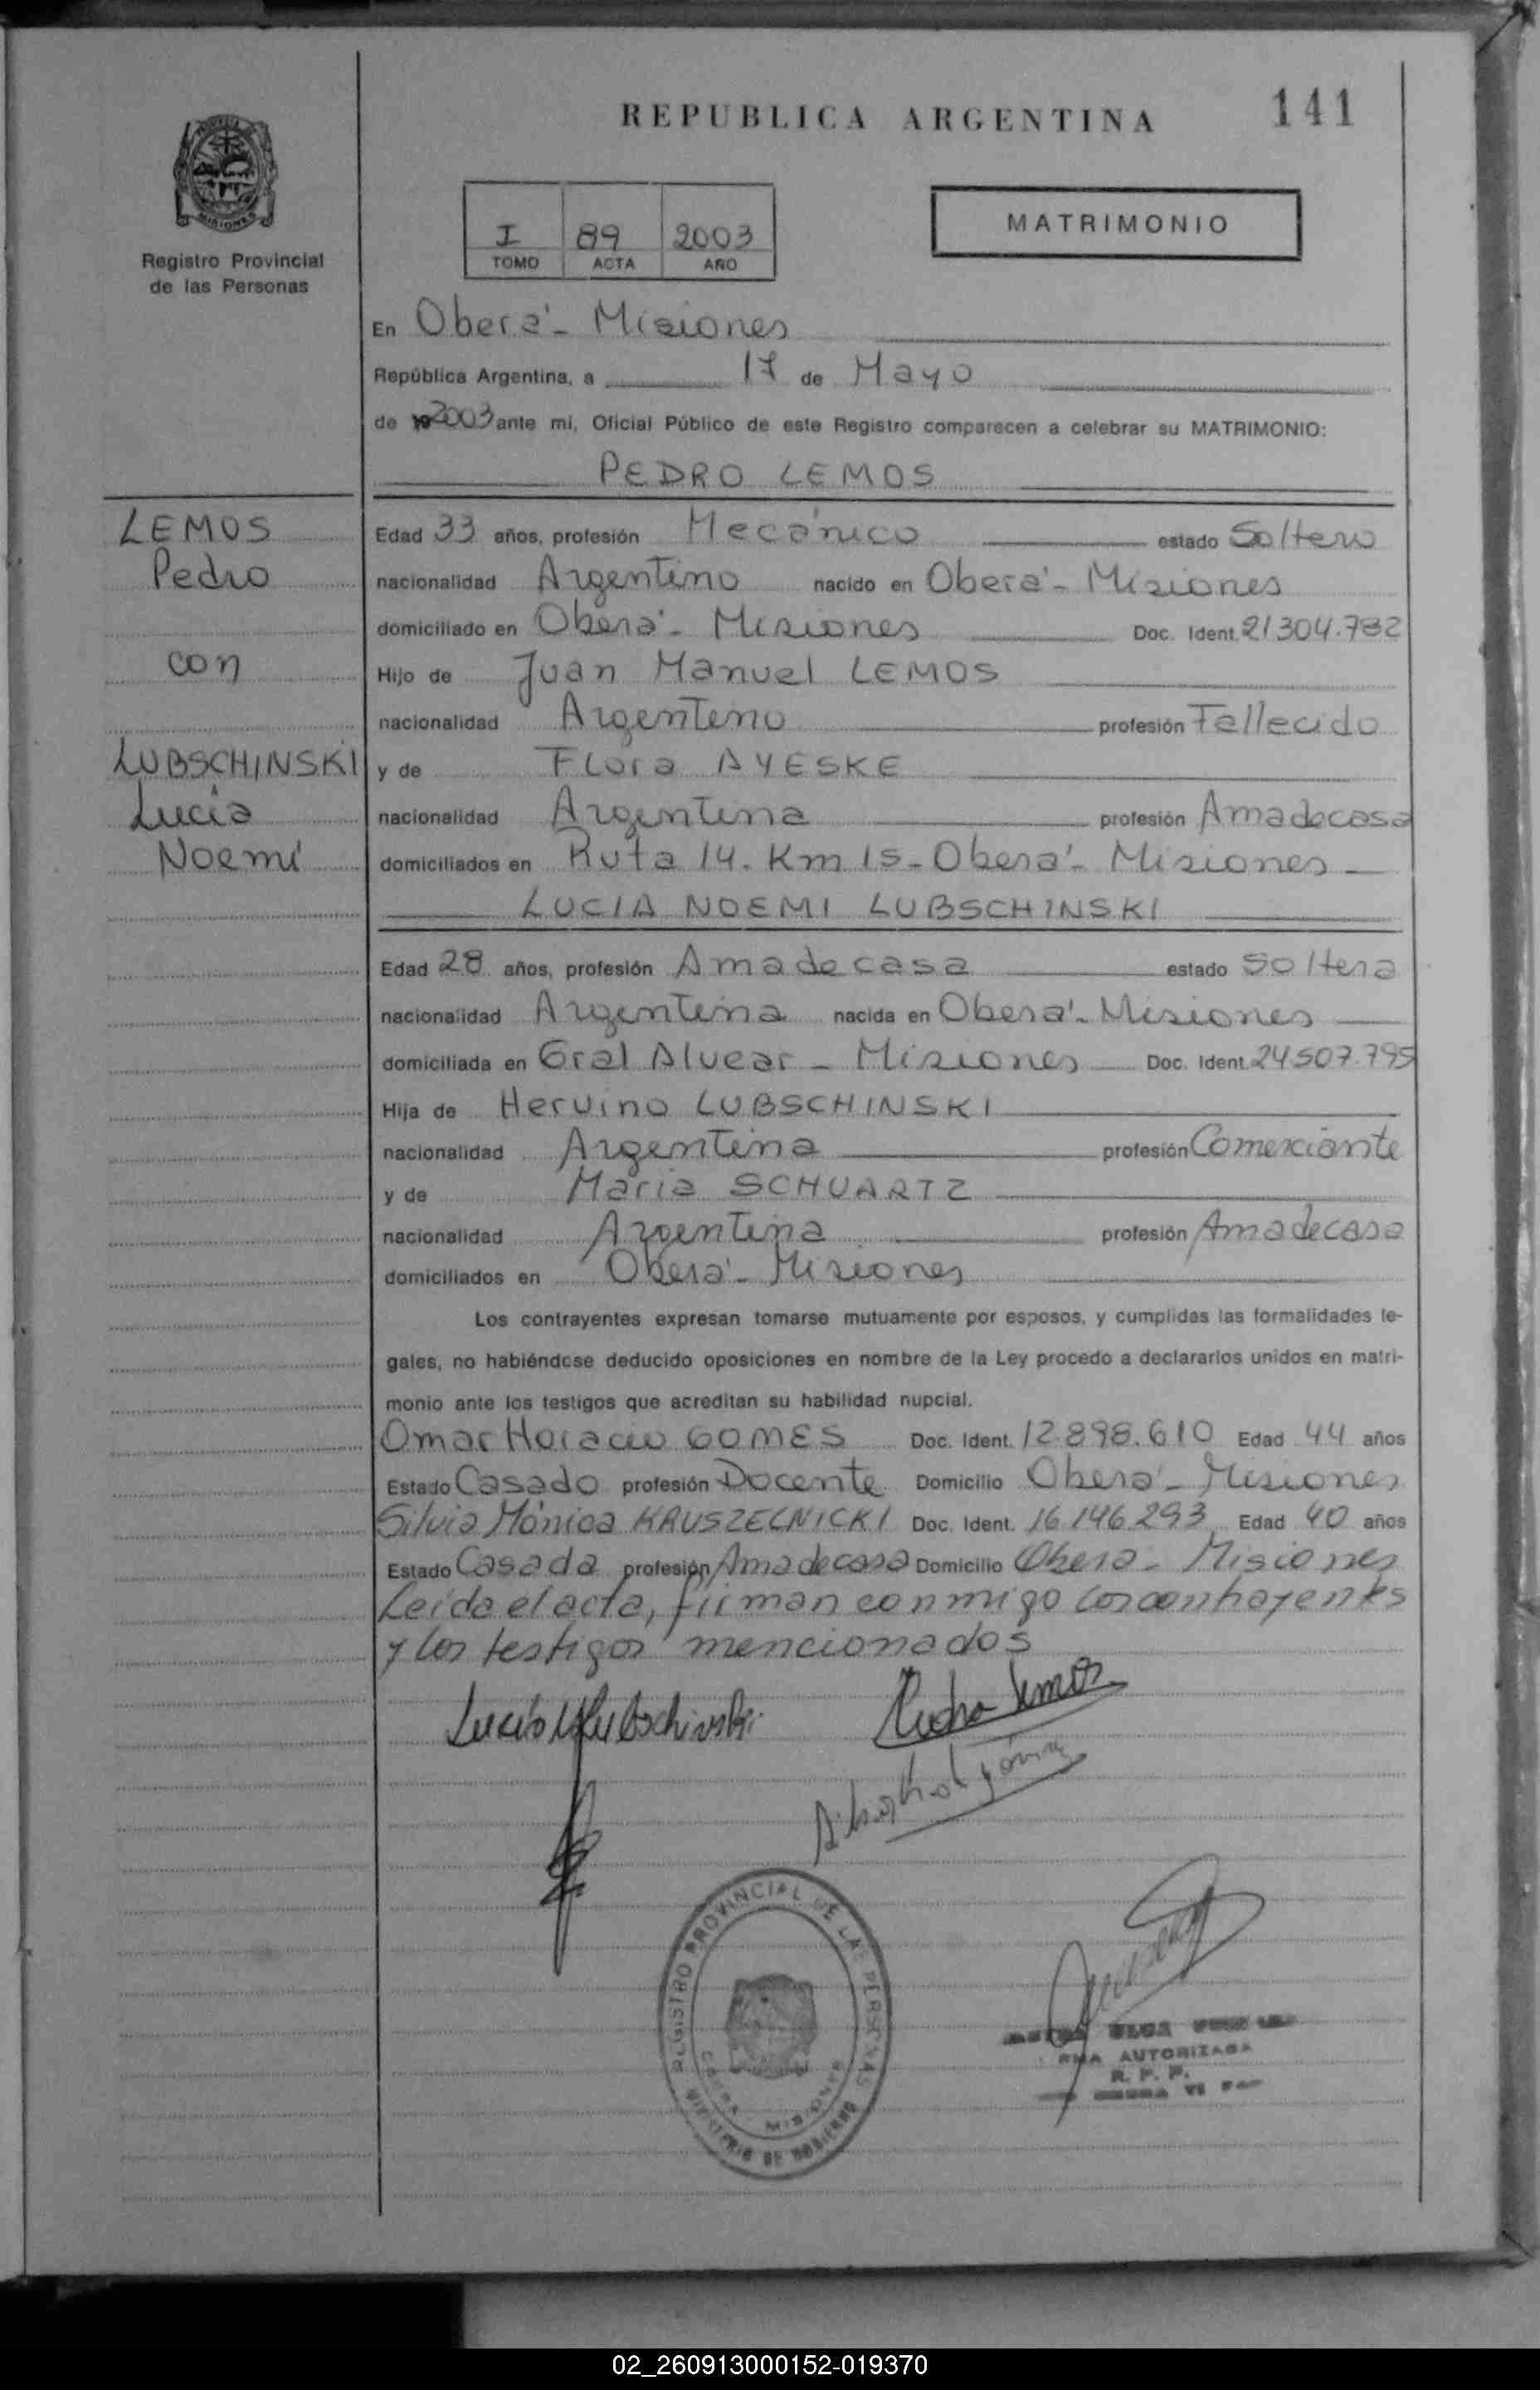 REPUBLICA ARGENTINA
141
MISIONES
Registro Provincial
de las Personas
I 89 2003
TOMO ACTA AÑO
MATRIMONIO
En Oberá - Misiones
República Argentina, a 17 de Mayo
de 2003 ante mi, Oficial Público de este Registro comparecen a celebrar su MATRIMONIO:
PEDRO LEMOS
LEMOS
Pedro
con
LUBSCHINSKI
Lucia
Noemí
Edad 33 años, profesión Mecánico estado Soltero
nacionalidad Argentino nacido en Oberá - Misiones
domiciliado en Oberá - Misiones Doc. Ident. 21304.782
Hijo de Juan Manuel LEMOS
nacionalidad Argentino profesión Fallecido
y de Flora AYESKE
nacionalidad Argentina profesión Amadecasa
domiciliados en Ruta 14. Km 15 - Oberá - Misiones
LUCIA NOEMI LUBSCHINSKI
Edad 28 años, profesión Amadecasa estado Soltera
nacionalidad Argentina nacida en Oberá - Misiones
domiciliada en Gral Alvear - Misiones Doc. Ident. 24.507.795
Hija de Hervino LUBSCHINSKI
nacionalidad Argentina profesión Comerciante
y de Maria SCHUARTZ
nacionalidad Argentina profesión Amadecasa
domiciliados en Oberá - Misiones
Los contrayentes expresan tomarse mutuamente por esposos, y cumplidas las formalidades le-
gales, no habiéndose deducido oposiciones en nombre de la Ley procedo a declararlos unidos en matri-
monio ante los testigos que acreditan su habilidad nupcial.
Omar Horacio GOMES Doc. Ident. 12.898.610 Edad 44 años
Estado Casado profesión Docente Domicilio Oberá - Misiones
Silvia Mónica KRUSZELNICKI Doc. Ident. 16.146.293 Edad 40 años
Estado Casada profesión Amadecasa Domicilio Oberá - Misiones
Leída el acta, firman conmigo los contrayentes
y los testigos mencionados
Lucia Lubschinski
Lemos
REGISTRO PROVINCIAL DE LAS PERSONAS
MISIONES
MINISTERIO DE GOBIERNO
AUTORIZADA
R. P. P.
02_260913000152-019370